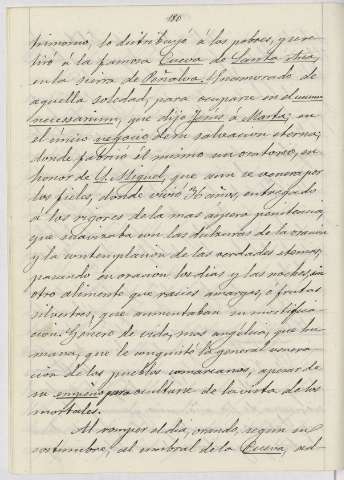 186
trimonio, lo distribuyó á los pobres, y se re-
tiró á la famosa Cueva de Santa Ana,
en la sierra de Peñalva, enamorado de
aquella soledad, para ocuparse en el unum
necessarium, que dijo Jesus á Marta; en
el único negocio de su salvacion eterna;
donde fabricó él mismo un oratorio, en
honor de S. Miguel, que aun se venera por
los fieles, donde vivió 36 años, entregado
á los rigores de la mas aspera penitencia,
que suavizaba con las dulzuras de la oracion
y la contemplacion de las verdades eternas,
pasando en oracion los dias y las noches, sin
otro alimento que raices amargas, ó frutas
silvestres, que aumentaban su mortifica-
cion. Género de vida, mas angelico, que hu-
mano, que le conquistó la general venera-
cion de los pueblos comarcanos, apesar de
su empeño para ocultarse de la vista de los
mortales.
Al romper el dia, orando, segun su
costumbre, al umbral de la Cueva,